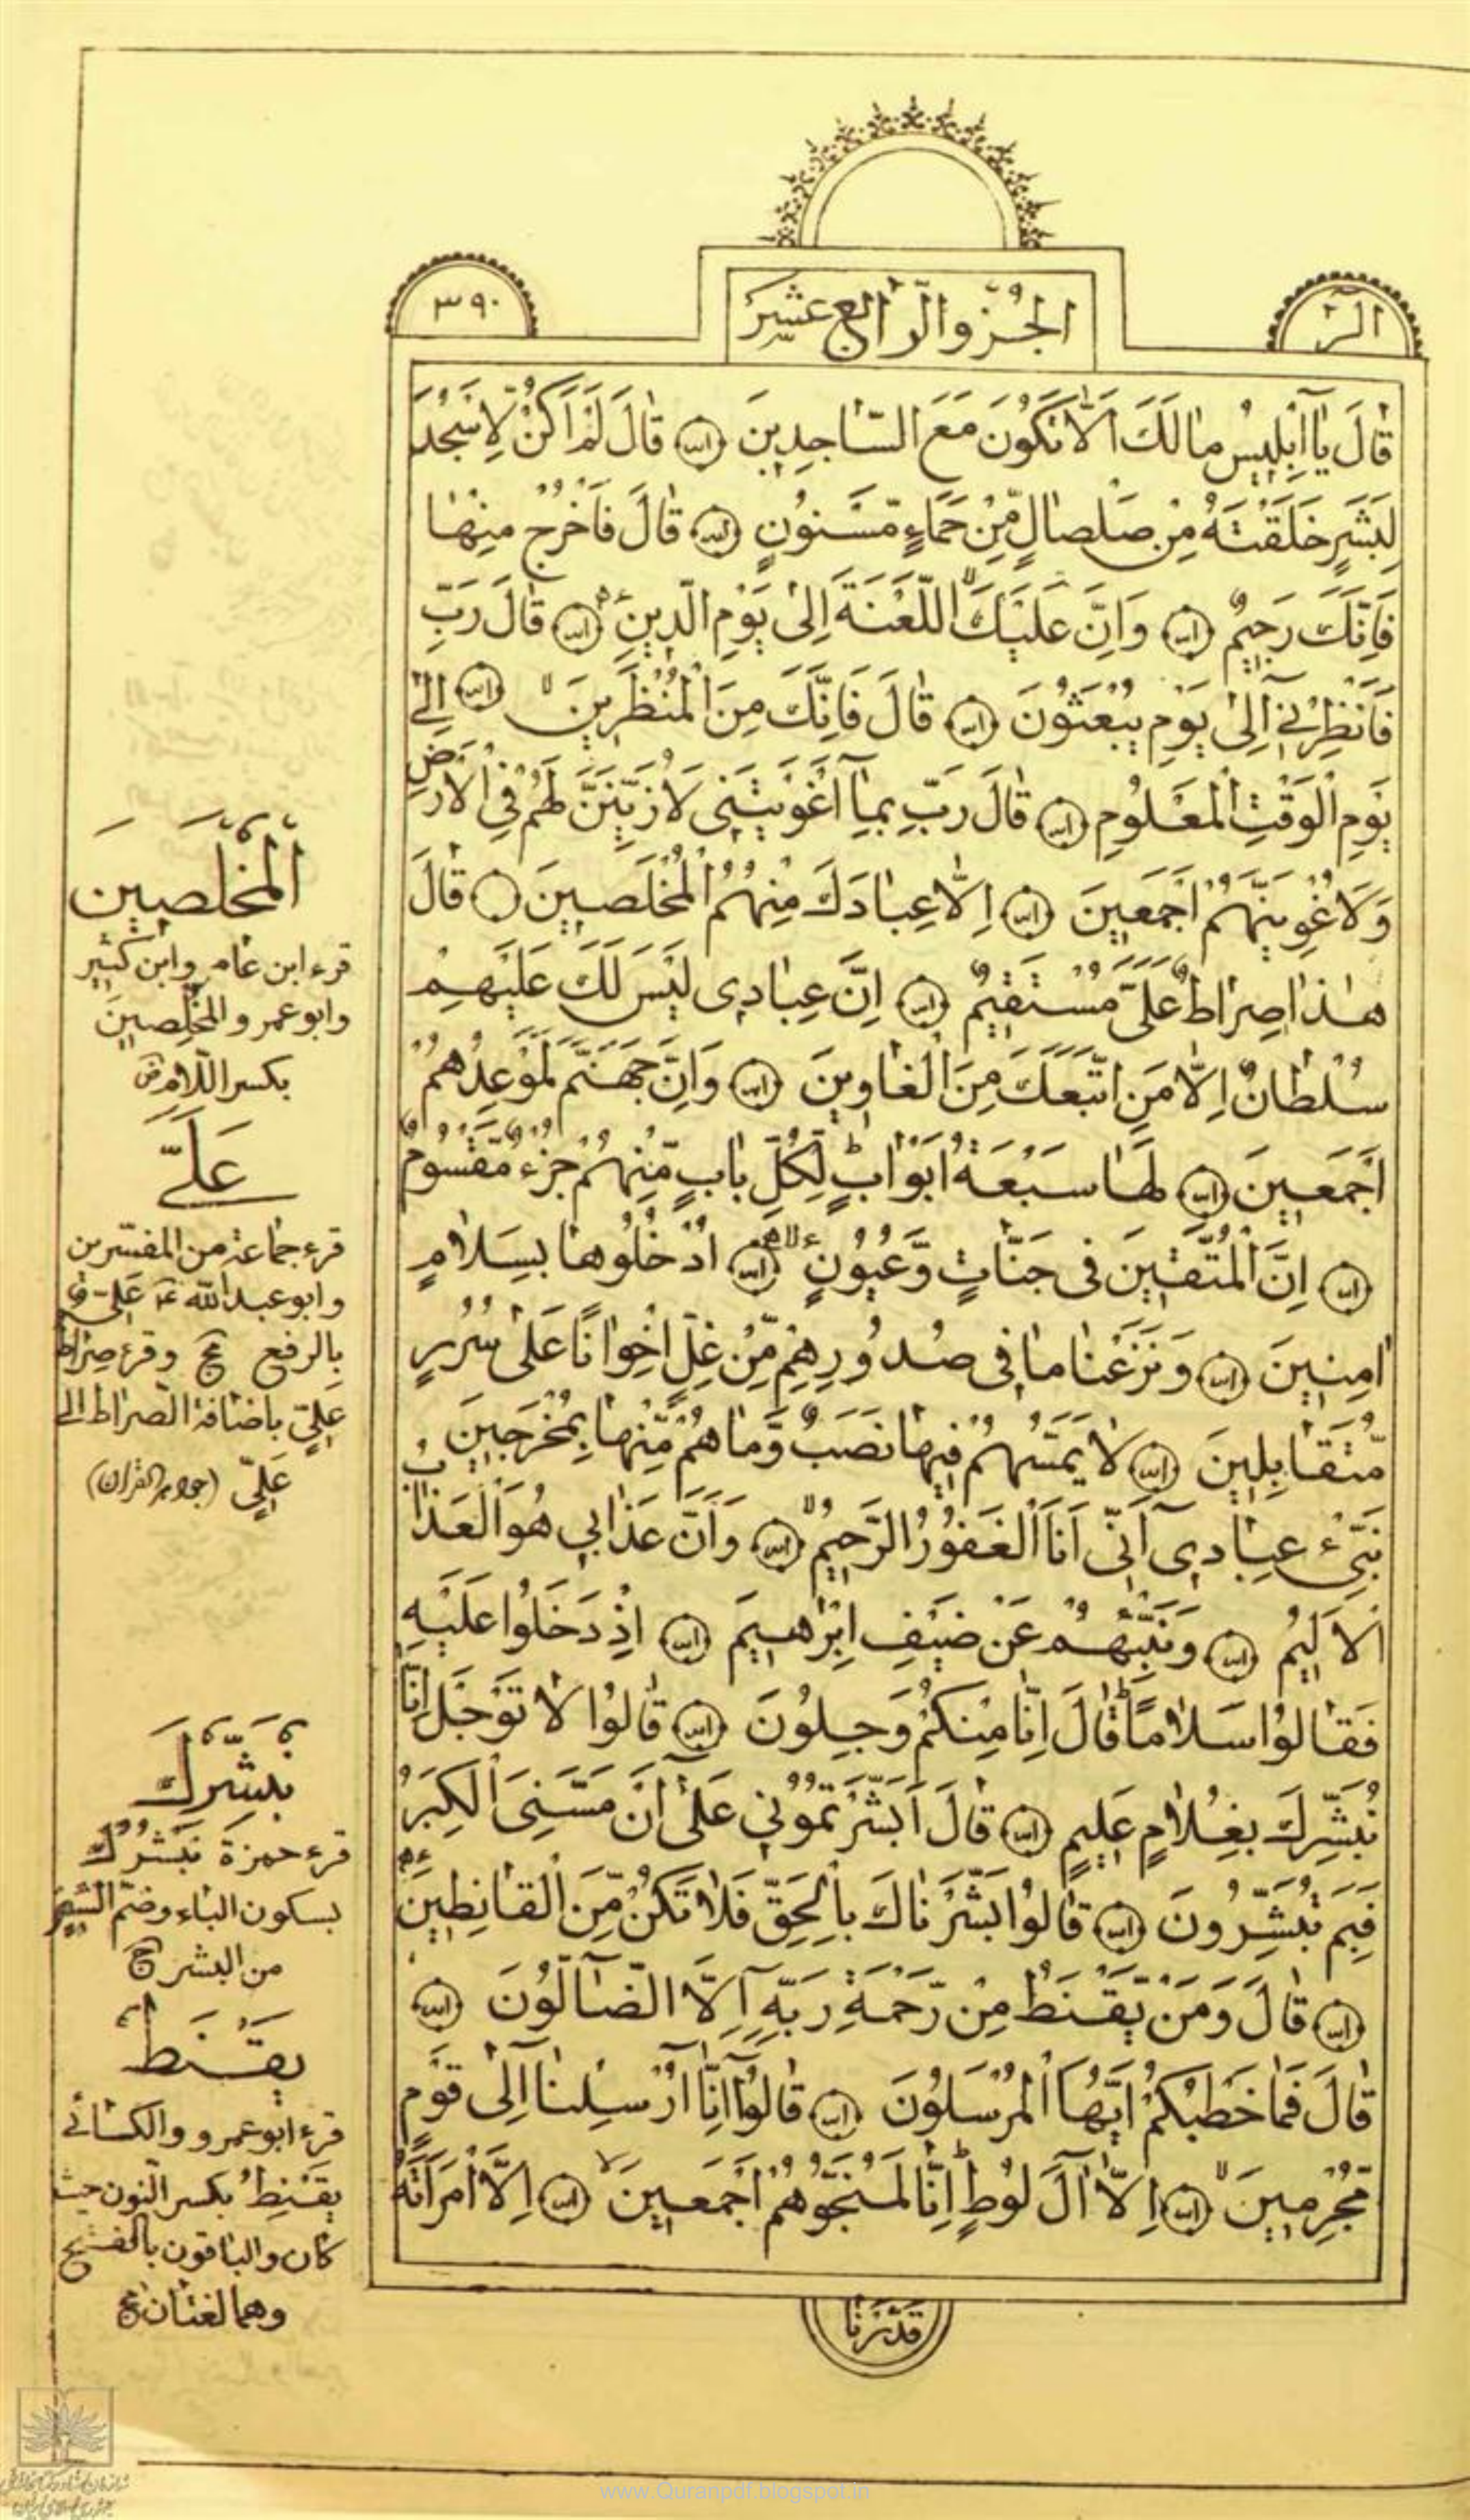 الجزء الرابع عشر
الر
٣٩٠
قَالَ يَا اِبْلِيسُ مَا لَكَ اَلَّا تَكُونَ مَعَ السَّاجِدِينَ قَالَ لَمْ اَكُنْ لِاَسْجُدَ
لِبَشَرٍ خَلَقْتَهُ مِنْ صَلْصَالٍ مِّنْ حَمَاءٍ مَّسْنُونٍ قَالَ فَاخْرُجْ مِنْهَا
فَاِنَّكَ رَجِيمٌ وَاِنَّ عَلَيْكَ اللَّعْنَةَ اِلَى يَوْمِ الدِّينِ قَالَ رَبِّ
فَاَنْظِرْنِي اِلَى يَوْمِ يُبْعَثُونَ قَالَ فَاِنَّكَ مِنَ الْمُنْظَرِينَ اِلَى
يَوْمِ الْوَقْتِ الْمَعْلُومِ قَالَ رَبِّ بِمَا اَغْوَيْتَنِي لَاُزَيِّنَنَّ لَهُمْ فِي الْاَرْضِ
وَلَاُغْوِيَنَّهُمْ اَجْمَعِينَ اِلَّا عِبَادَكَ مِنْهُمُ الْمُخْلَصِينَ قَالَ
هٰذَا صِرَاطٌ عَلَيَّ مُسْتَقِيمٌ اِنَّ عِبَادِي لَيْسَ لَكَ عَلَيْهِمْ
سُلْطَانٌ اِلَّا مَنِ اتَّبَعَكَ مِنَ الْغَاوِينَ وَاِنَّ جَهَنَّمَ لَمَوْعِدُهُمْ
اَجْمَعِينَ لَهَا سَبْعَةُ اَبْوَابٍ لِكُلِّ بَابٍ مِّنْهُمْ جُزْءٌ مَّقْسُومٌ
اِنَّ الْمُتَّقِينَ فِي جَنَّاتٍ وَّعُيُونٍ اُدْخُلُوهَا بِسَلَامٍ
اٰمِنِينَ وَنَزَعْنَا مَا فِي صُدُورِهِمْ مِّنْ غِلٍّ اِخْوَانًا عَلَى سُرُرٍ
مُّتَقَابِلِينَ لَا يَمَسُّهُمْ فِيهَا نَصَبٌ وَّمَا هُمْ مِّنْهَا بِمُخْرَجِينَ
نَبِّئْ عِبَادِي اَنِّي اَنَا الْغَفُورُ الرَّحِيمُ وَاَنَّ عَذَابِي هُوَ الْعَذَابُ
الْاَلِيمُ وَنَبِّئْهُمْ عَنْ ضَيْفِ اِبْرٰهِيمَ اِذْ دَخَلُوا عَلَيْهِ
فَقَالُوا سَلَامًا قَالَ اِنَّا مِنْكُمْ وَجِلُونَ قَالُوا لَا تَوْجَلْ اِنَّا
نُبَشِّرُكَ بِغُلَامٍ عَلِيمٍ قَالَ اَبَشَّرْتُمُونِي عَلَى اَنْ مَسَّنِيَ الْكِبَرُ
فَبِمَ تُبَشِّرُونَ قَالُوا بَشَّرْنَاكَ بِالْحَقِّ فَلَا تَكُنْ مِّنَ الْقَانِطِينَ
قَالَ وَمَنْ يَّقْنَطُ مِنْ رَّحْمَةِ رَبِّهِ اِلَّا الضَّالُّونَ
قَالَ فَمَا خَطْبُكُمْ اَيُّهَا الْمُرْسَلُونَ قَالُوا اِنَّا اُرْسِلْنَا اِلَى قَوْمٍ
مُّجْرِمِينَ اِلَّا اٰلَ لُوطٍ اِنَّا لَمُنَجُّوهُمْ اَجْمَعِينَ اِلَّا امْرَاَتَهُ
قَدَّرْنَا
اَلْمُخْلَصِينَ
قرء ابن عامر وابن كثير
وابو عمر والمخلِصين
بكسر اللام
عَلَيَّ
قرء جماعة من المفسرين
وابو عبد الله
بالرفع وقرء صراط
عَلِيٍّ باضافة الصراط الى
عَلِيٍّ (جواهر القرآن)
نُبَشِّرُكَ
قرء حمزة نَبْشُرُكَ
بسكون الباء وضم الشين
من البشر
يَقْنَطُ
قرء ابو عمرو والكسائي
يَقْنِطُ بكسر النون حيث
كان والباقون بالفتح
وهما لغتان
www.Quranpdf.blogspot.in